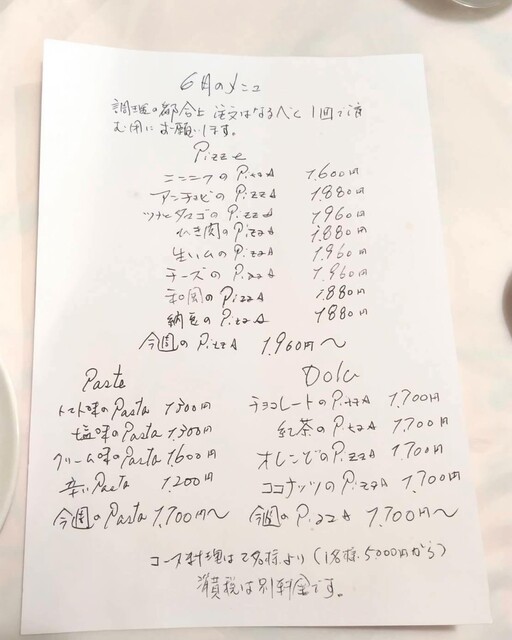 6月のメニュ
調理の都合上 注文はなるべく1回で済
む用にお願いします。
Pizze
ニンニクのPizzA 1,600円
アンチョビのPizzA 1,880円
ツナとタマゴのPizzA 1,960円
ひき肉のPizzA 1,880円
生ハムのPizzA 1,960円
チーズのPizzA 1,960円
和風のPizzA 1,880円
納豆のPizzA 1,880円
今週のPizzA 1,960円〜
Paste
トマト味のPasta 1,500円
塩味のPasta 1,500円
クリーム味のPasta 1,600円
辛いPasta 1,200円
今週のPasta 1,700円〜
Dolci
チョコレートのPizzA 1,700円
紅茶のPizzA 1,700円
オレンジのPizzA 1,700円
ココナッツのPizzA 1,700円
今週のPizzA 1,700円〜
コース料理は2名様より(1名様5,000円から)
消費税は別料金です。